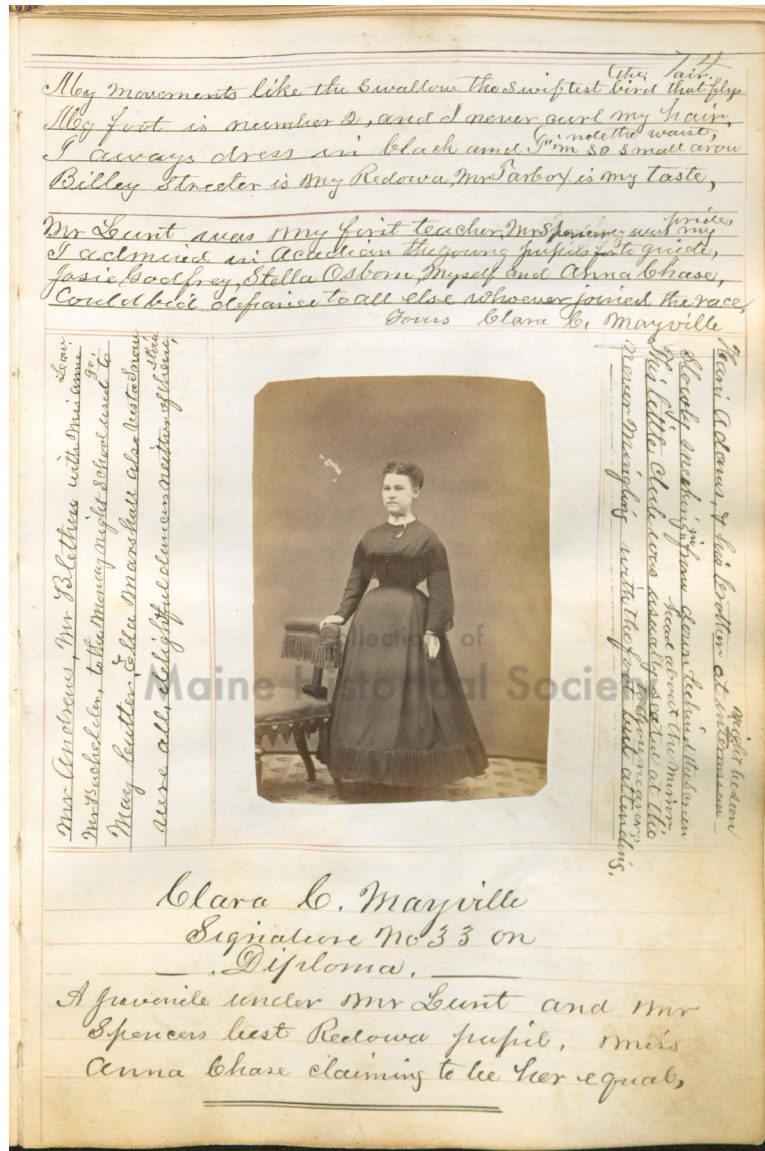 74
the fair.
My movements like the swallow the swiftest bird that flys
My foot is number 2, and I never curl my hair,
note the waist,
I always dress in black and I'm so small arou
Billey Streeter is my Redowa, Mr Tarbox is my taste,
pride,
Mr Lunt was my first teacher, Mr Spencer was my
I admired in Acadian the young pupils for to guide,
Josie Godfrey, Stella Osborn, Myself and Anna Chase,
Could bid defiance to all else whoever joined the race,
Yours Clara C. Mayville
Mr Andrews, Mr Blethen with Miss Annie
Mr Bachelder, to the Monday night School used to
go,
May Cutter, Ella Marshall also Vesta Snow
were all, delightful dancers neither of them
slow,
Adams, & his brother at intermission
might be seen
Slowly from down behind the
hear about the mirror
This little club was usually seated at the
never Mingling with the but attending.
Collections of
Maine Historical Society
Clara C. Mayville
Signature No 33 on
Diploma.
A juvenile under Mr Lunt and Mr
Spencers best Redowa pupil, Miss
Anna Chase claiming to be her equal,